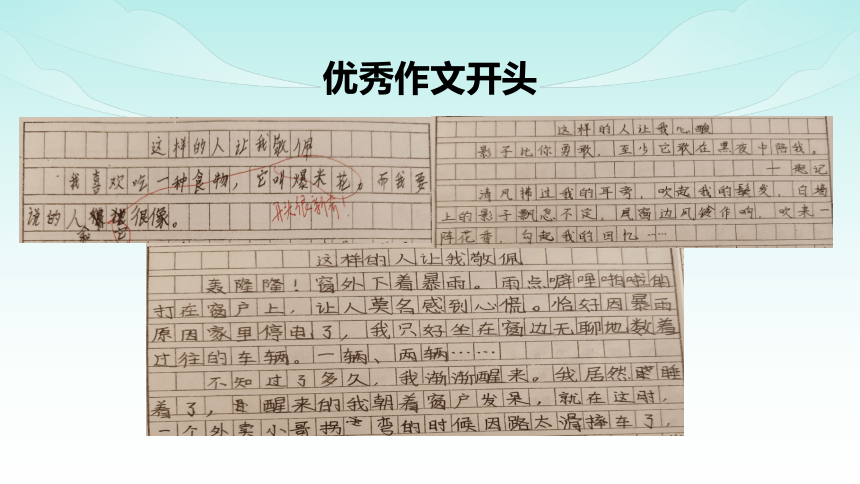 优秀作文开头
这样的人让我敬佩
我喜欢吃一种食物，它叫爆米花。而我要
说的人和它很像。
开头很新奇！
这样的人让我心酸
影子比你勇敢，至少它敢在黑夜中陪我。
——题记
清风拂过我的耳旁，吹起我的鬓发，白墙
上的影子飘忽不定，屋窗边风铃作响，吹来一
阵花香，勾起我的回忆……
这样的人让我敬佩
轰隆隆！窗外下着暴雨。雨点噼哩啪哦的
打在窗户上，让人莫名感到心慌。恰好因暴雨
原因家里停电了，我只好坐在窗边无聊地数着
过往的车辆。一辆、两辆……
不知过了多久，我渐渐醒来。我居然睡
着了，醒来的我朝着窗户发呆，就在这时，
一个外卖小哥拐弯的时候因路太滑摔车了，